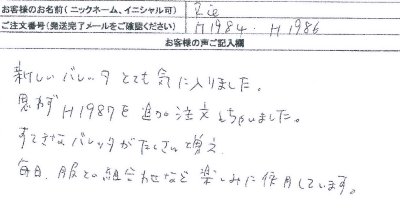 お客様のお名前(ニックネーム、イニシャル可) Rie
ご注文番号(発送完了メールをご確認ください) H1984. H1986
お客様の声ご記入欄
新しいバレッタ とても 気に入りました。
思わず H1987を 追加注文しちゃいました。
すてきなバレッタが たくさん増え
毎日、服との組合わせなど 楽しみに 使用しています。